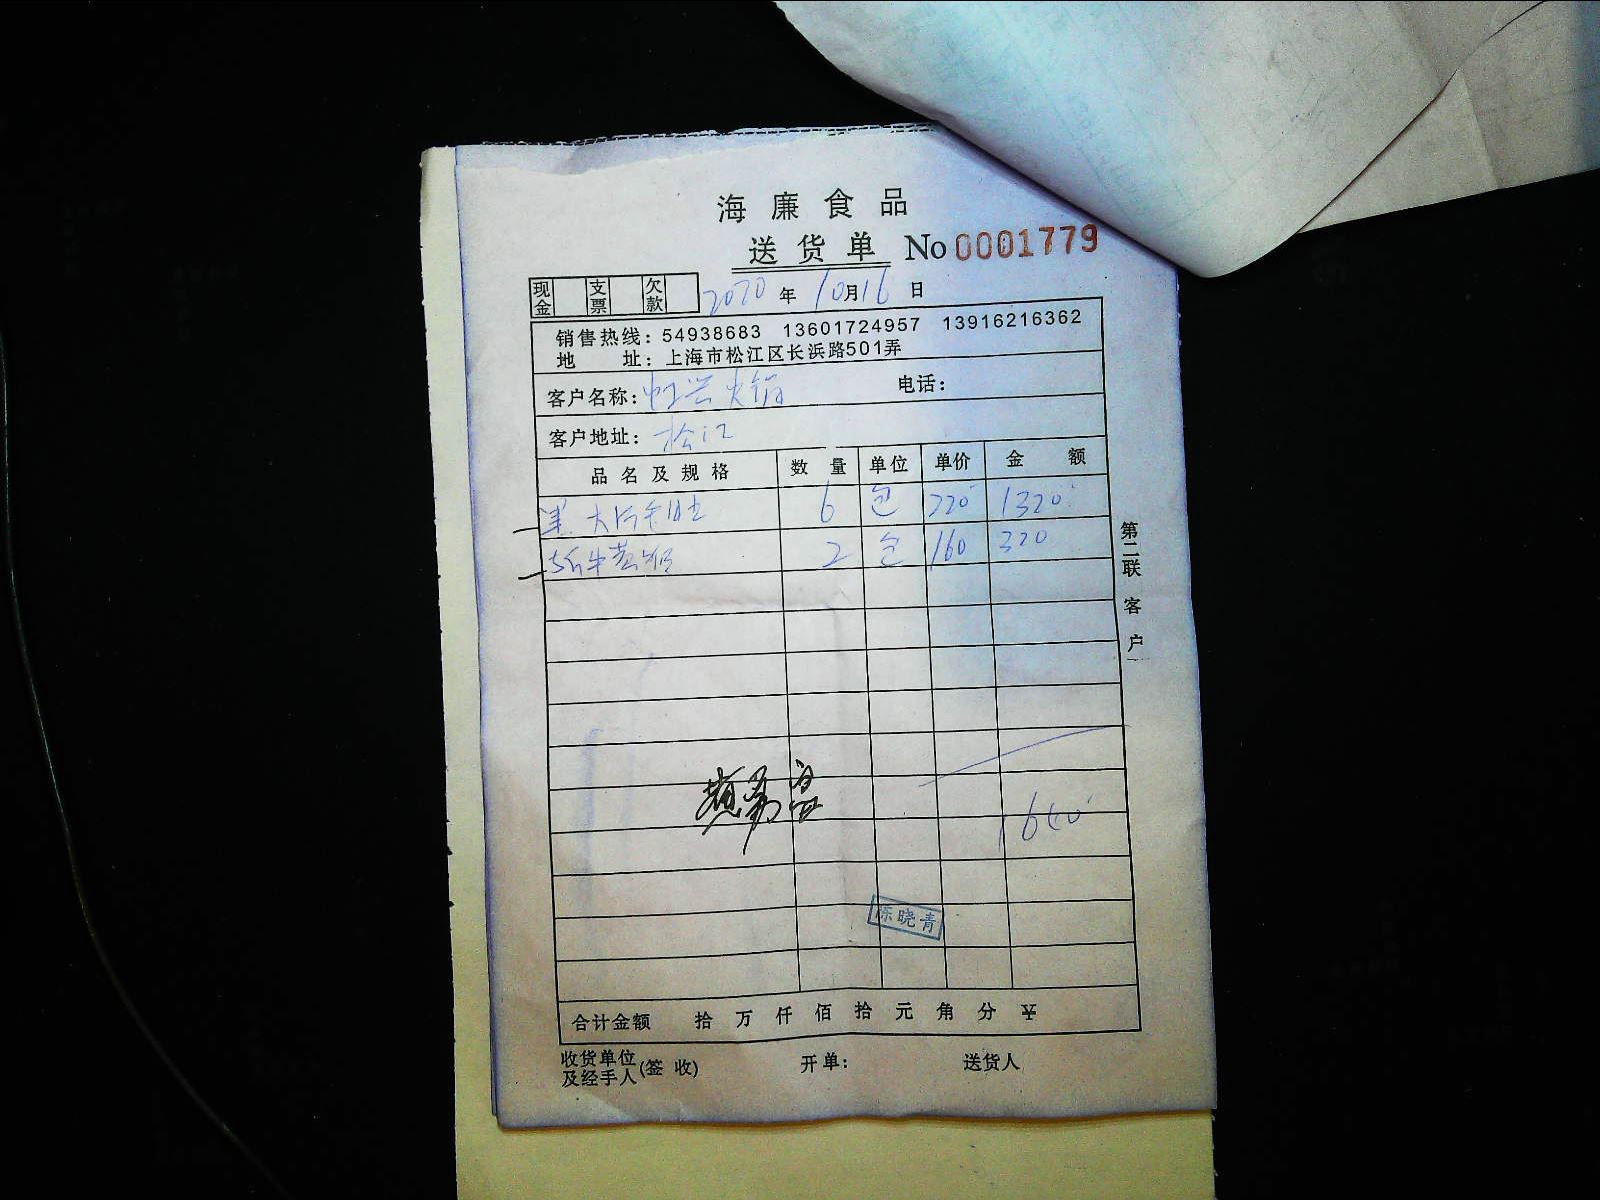 海廉食品
送货单 No 0001779
现金 支票 欠款 2020年10月16日
销售热线：54938683 13601724957 13916216362
地 址：上海市松江区长浜路501弄
客户名称： 火锅 电话：
客户地址：松江
品名及规格 数量 单位 单价 金额
6 包 220 1320
2 包 160 320
第二联 客户
1640
陈晓青
合计金额 拾 万 仟 佰 拾 元 角 分 ¥
收货单位及经手人(签收) 开单： 送货人